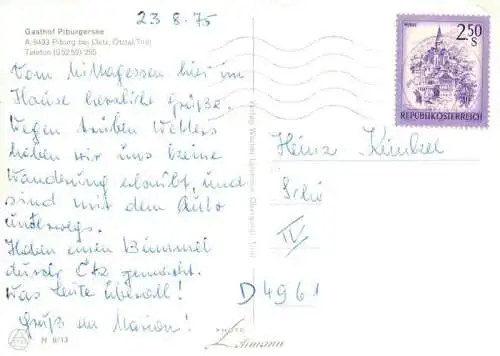 23.8.75
Gasthof Piburgersee
A-6433 Piburg bei Oetz, Ötztal, Tirol
Telefon (05252) 295
Vom Mittagessen hier im
Hause herzliche Grüße.
Wegen trüben Wetters
haben wir uns keine
Wanderung erlaubt, und
sind mit dem Auto
unterwegs.
Haben einen Bummel
durch Ötz gemacht.
Was Leute überall!
Gruß an Marion!
M 8/13
2.50
S
REPUBLIK ÖSTERREICH
Heinz Kinkel
IV
D 4961
PHOTO